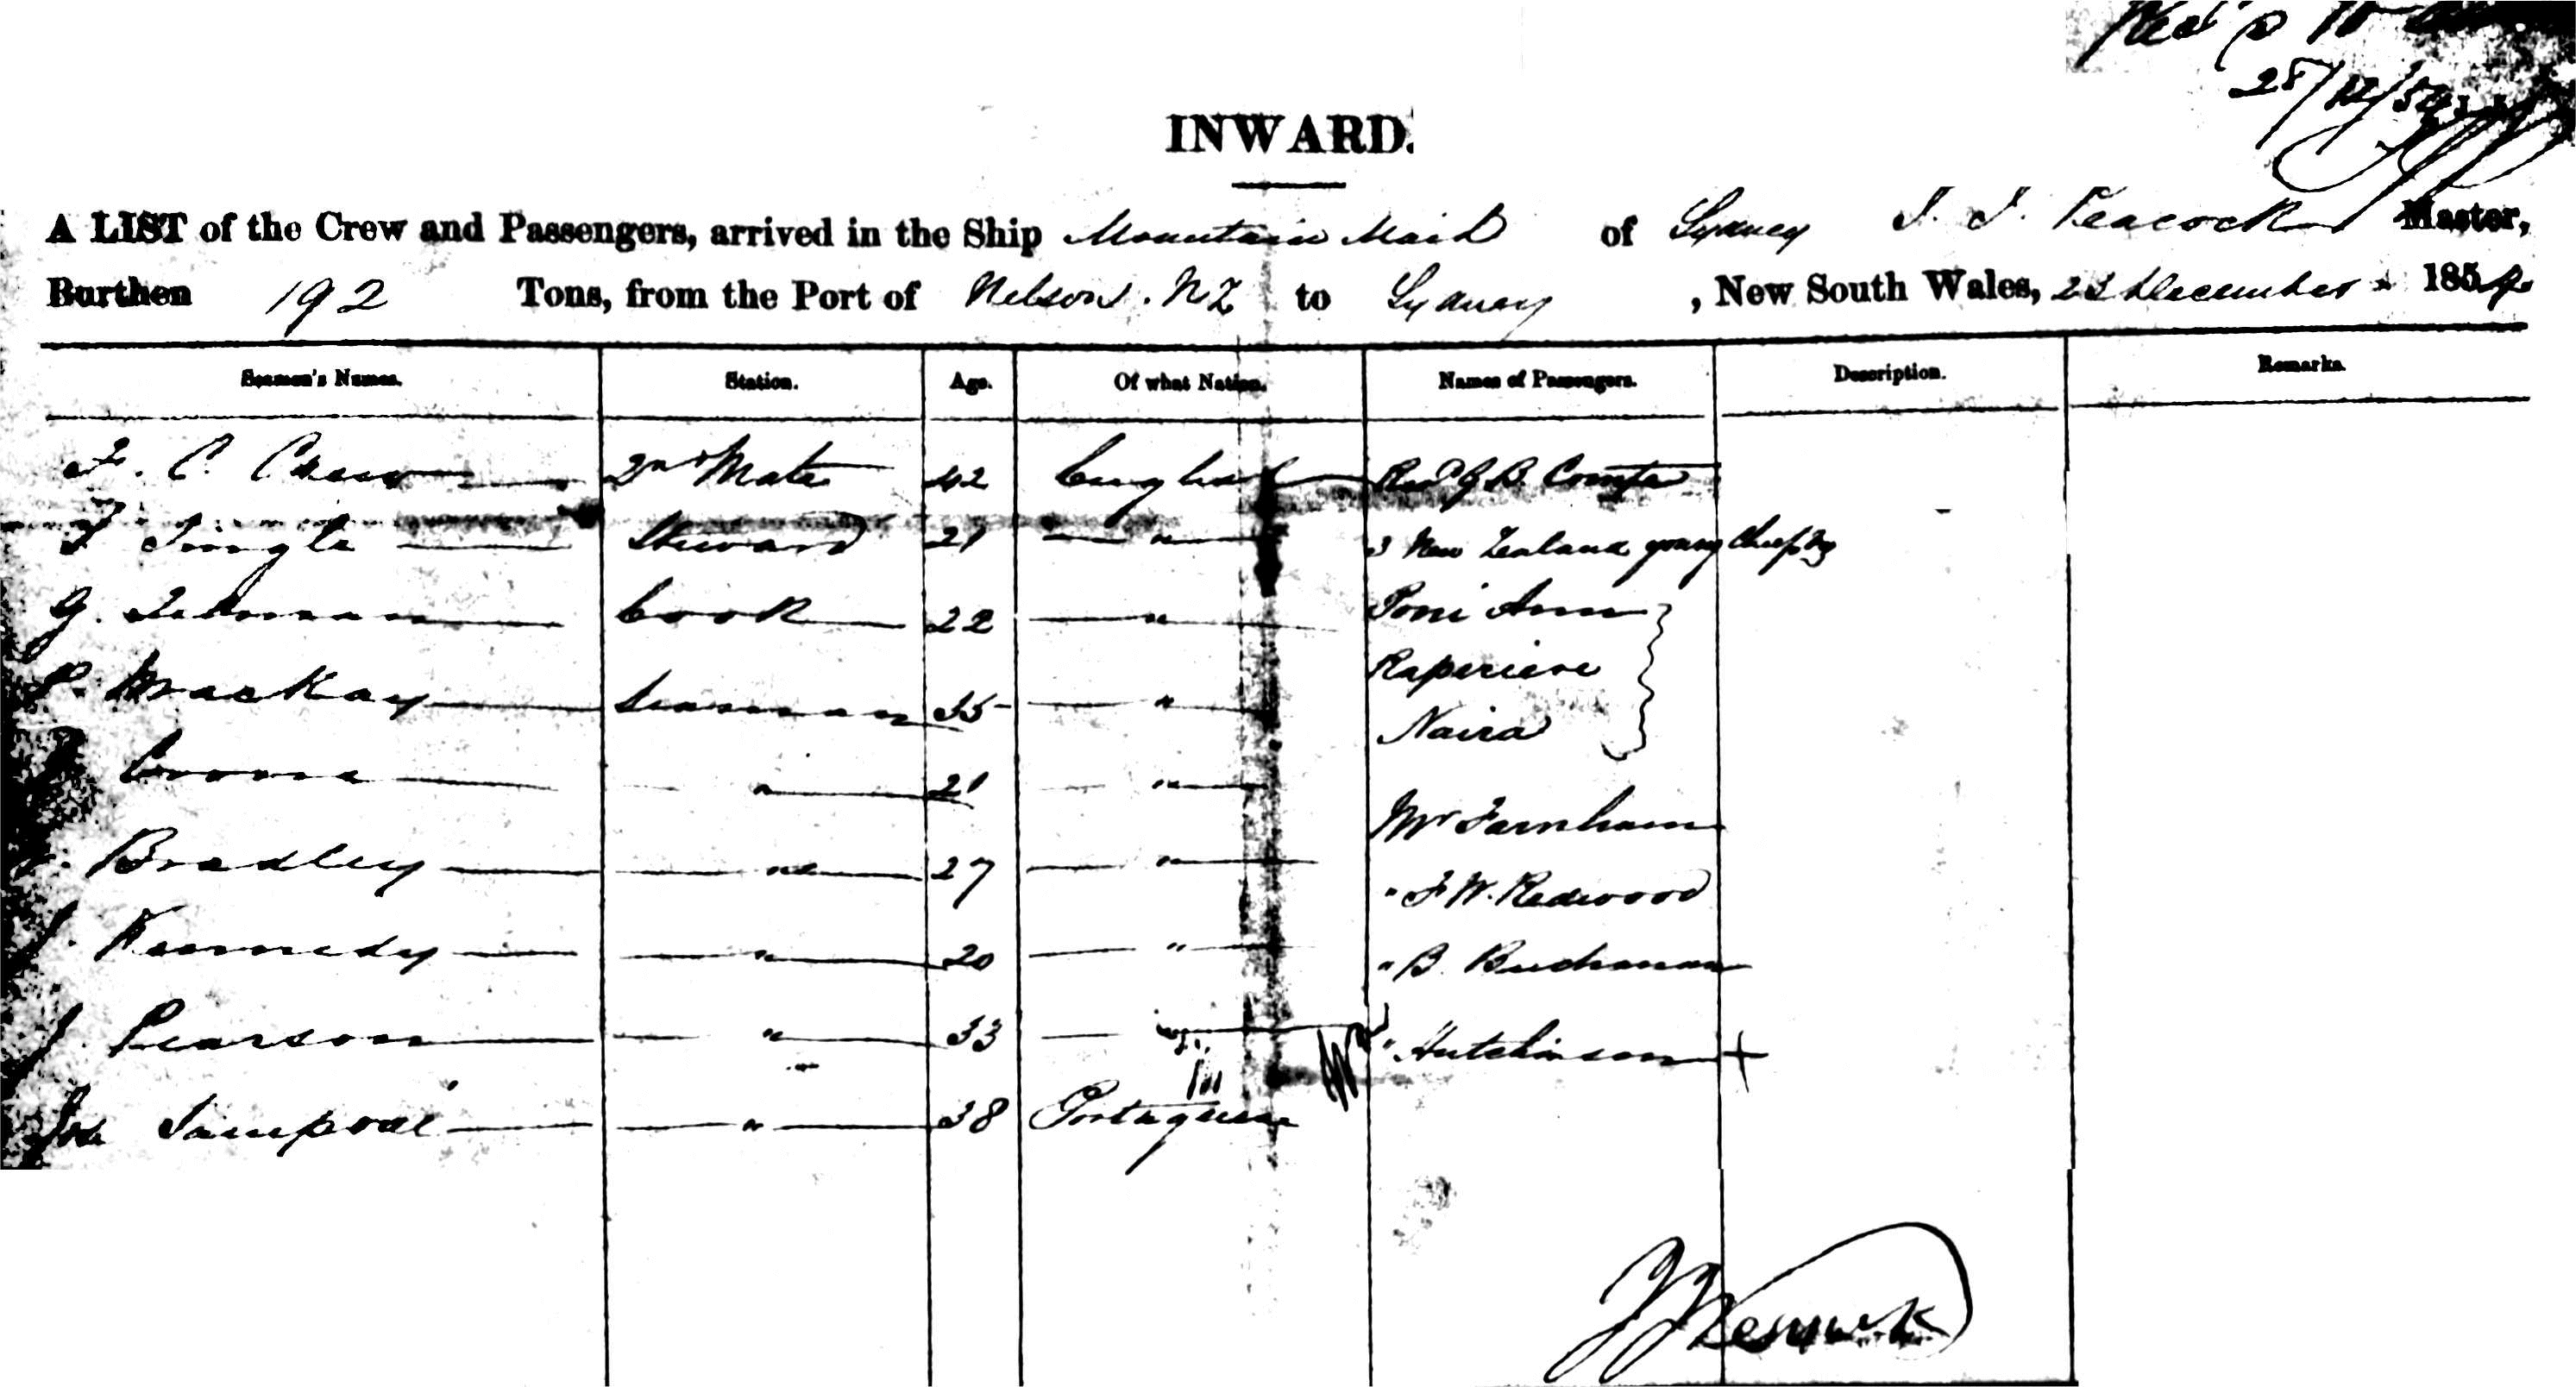 28/12/54
INWARD.
A LIST of the Crew and Passengers, arrived in the Ship Mountain Maid of Sydney J. J. Peacock Master,
Burthen 192 Tons, from the Port of Nelson. NZ to Sydney, New South Wales, 23 December 1854
Seamen's Names. Station. Age. Of what Nation. Names of Passengers. Description. Remarks.
F. C. 2nd Mate 42 English Revd J B. Comte
Steward 21 " 3 New Zealand young Chiefs
G. Cook 22 " Toni
P. MacKay Seaman 35 " Raperiere
Naira
" 21 "
Mr Farnham
Bradley " 27 "
" F W. Redwood
J. Kennedy " 20 "
" B. Buchanan
J. Pearson " 33 "
" Hutchinson +
Sampoal " 38 Portuguese